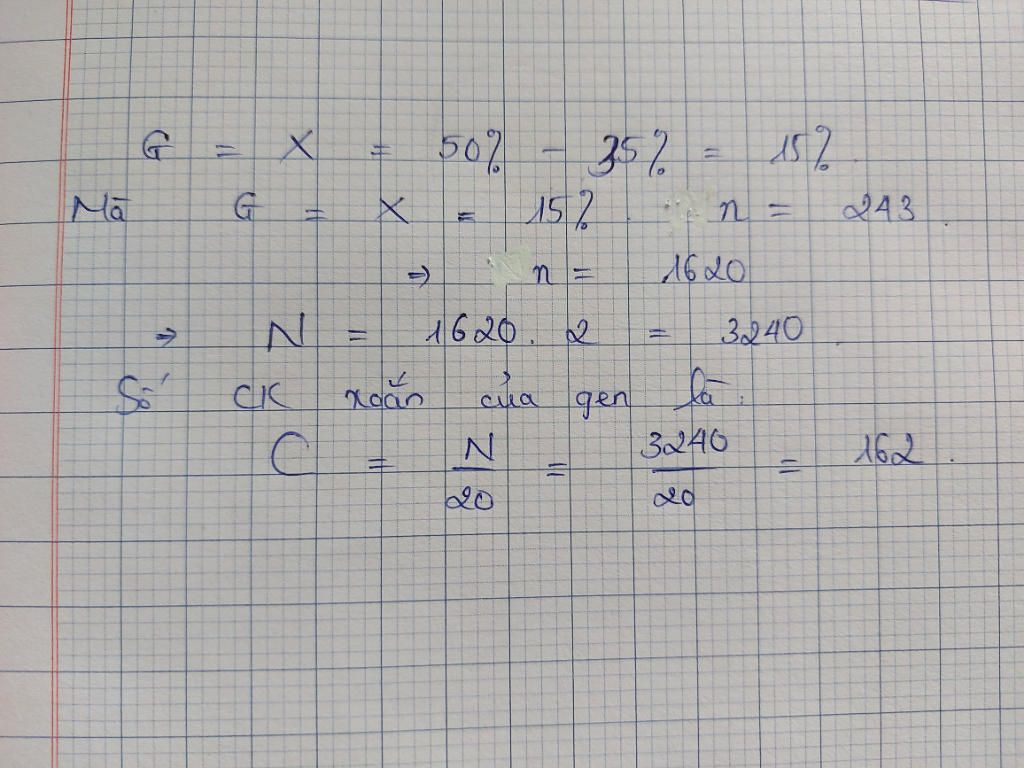 G = X = 50% - 35% = 15%.
Mà G = X = 15%. n = 243.
⇒ n = 1620
⇒ N = 1620. 2 = 3240.
Số CK xoắn của gen là:
C = N/20 = 3240/20 = 162.